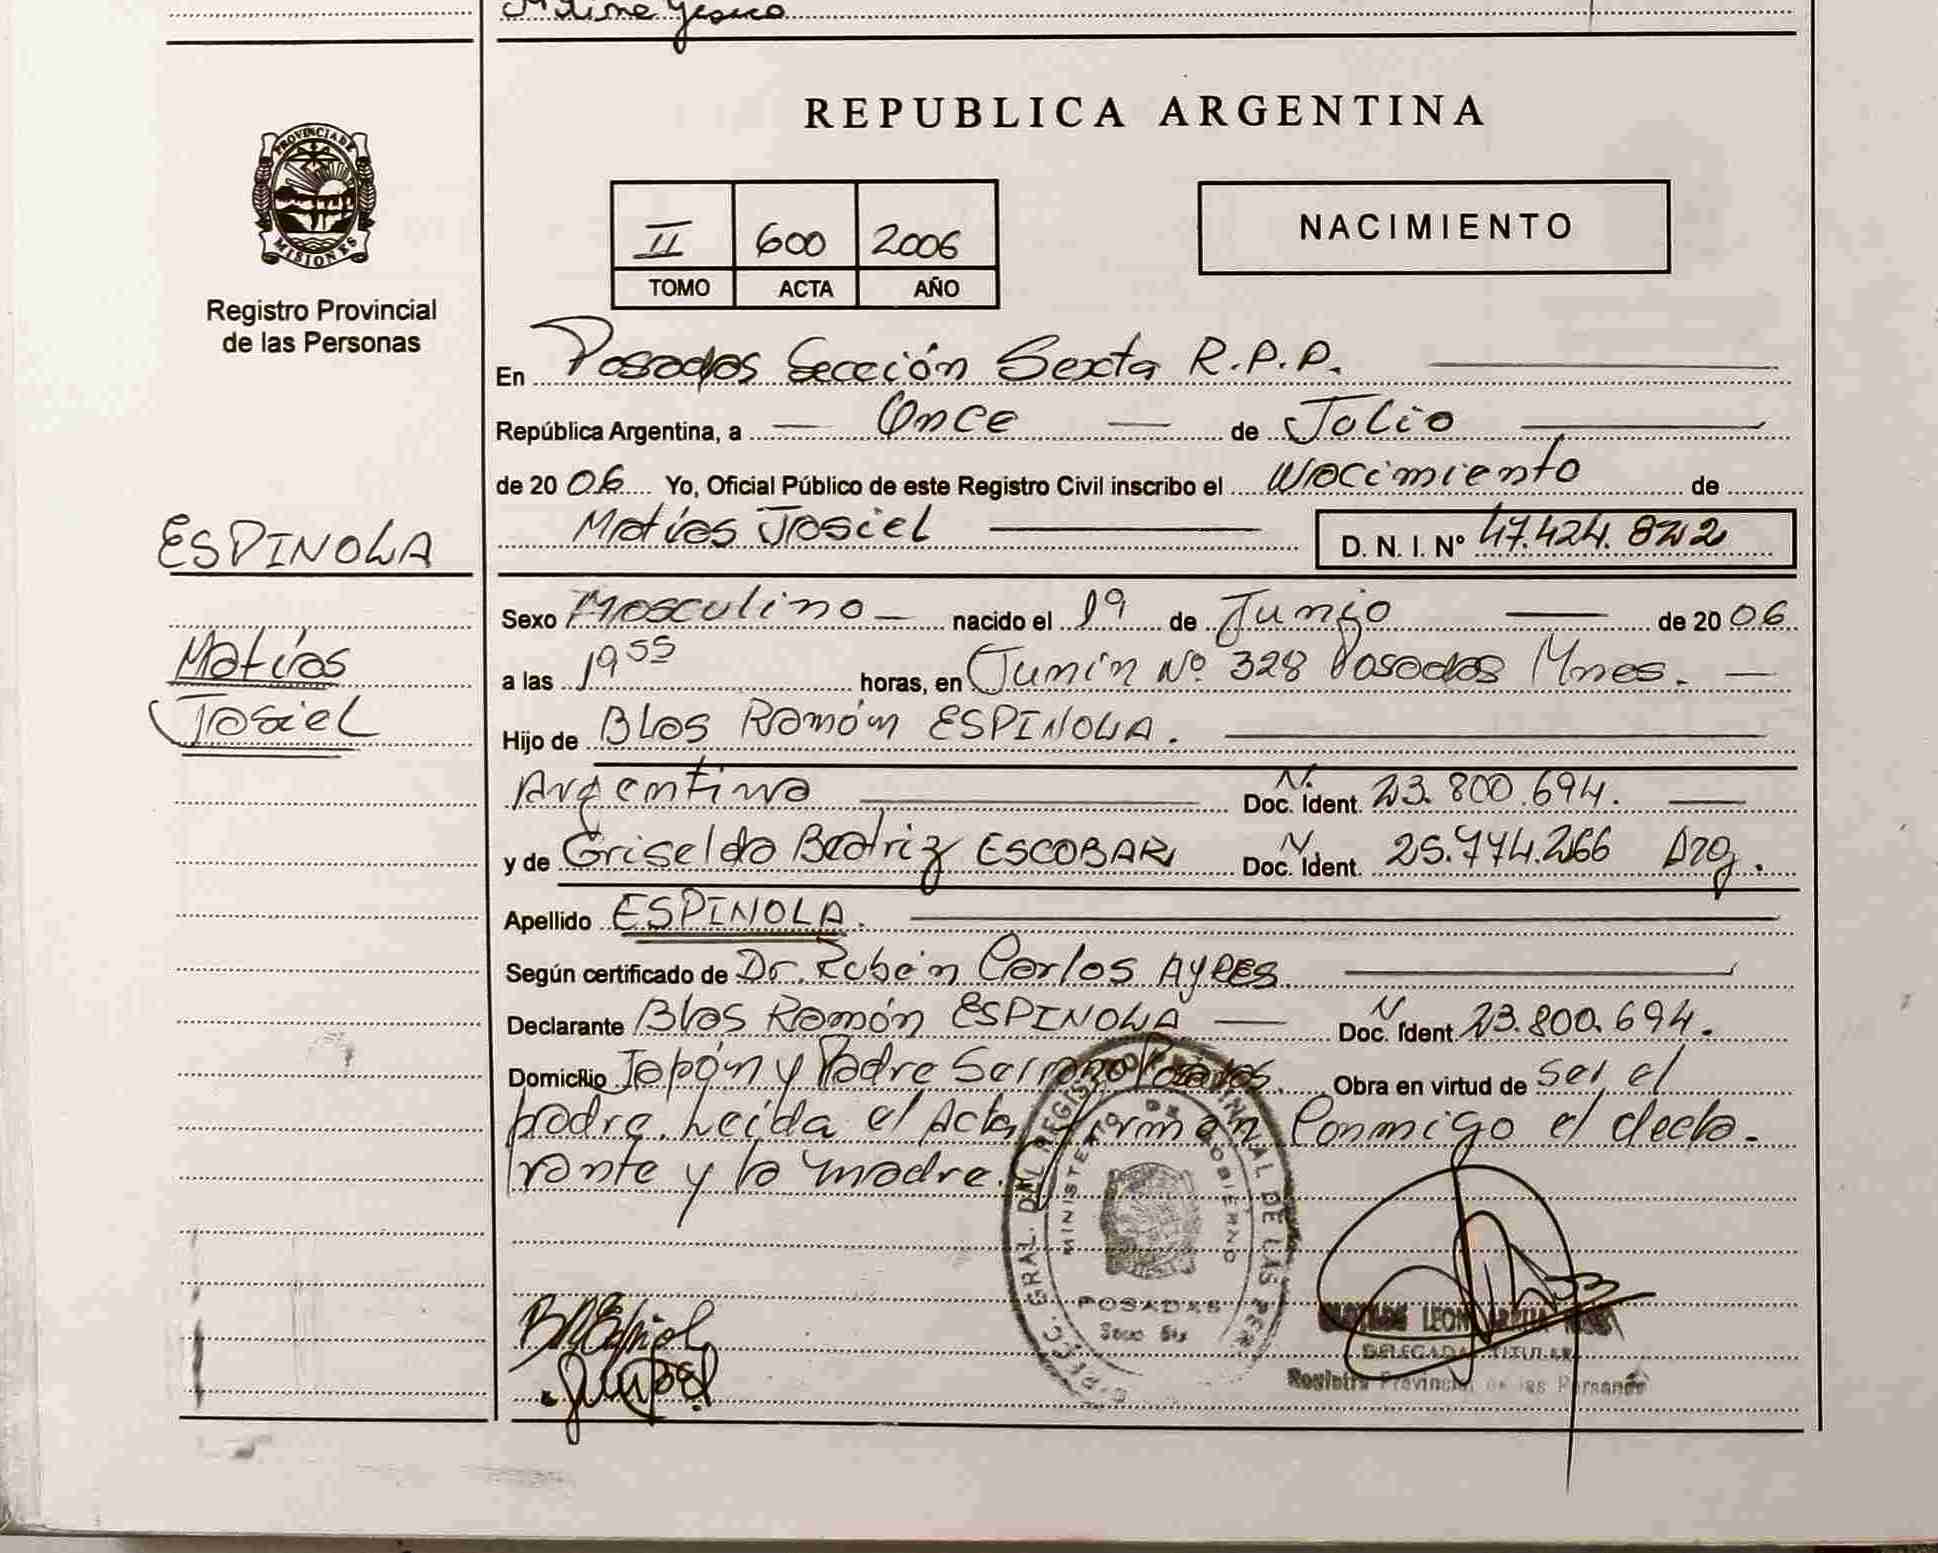 Yesica
REPUBLICA ARGENTINA
PROVINCIA DE
MISIONES
Registro Provincial
de las Personas
II 600 2006
TOMO ACTA AÑO
NACIMIENTO
En Posadas Sección Sexta R.P.P.
República Argentina, a Once de Julio
de 20 06 Yo, Oficial Público de este Registro Civil inscribo el Nacimiento de
Matías Josiel D. N. I. Nº 47.424.822
ESPINOLA
Matías
Josiel
Sexo Masculino nacido el 19 de Junio de 20 06
a las 19 55 horas, en Junín Nº 328 Posadas Mnes.
Hijo de Blas Ramón ESPINOLA.
Argentina N. Doc. Ident. 23.800.694.
y de Griselda Beatriz ESCOBAR N. Doc. Ident. 25.774.266 Arg.
Apellido ESPINOLA.
Según certificado de Dr. Rubén Carlos AYRES
Declarante Blas Ramón ESPINOLA N Doc. Ident. 23.800.694.
Domicilio Japón y Padre Serrano Posadas. Obra en virtud de ser el
padre. Leída el Acta, firman Conmigo el decla-
rante y la madre.
MINISTERIO DE GOBIERNO
POSADAS
LEON
DELEGADA TITULAR
Registro Provincial de las Personas